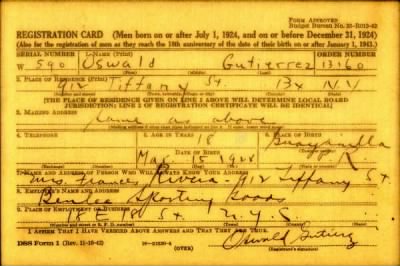 FORM APPROVED
Budget Bureau No. 33-R012-42
REGISTRATION CARD (Men born on or after July 1, 1924, and on or before December 31, 1924)
(Also for the registration of men as they reach the 18th anniversary of the date of their birth on or after January 1, 1943.)
SERIAL NUMBER 1. NAME (Print) ORDER NUMBER
W 590 Oswald Gutierrez 13160
(First) (Middle) (Last)
2. PLACE OF RESIDENCE (Print)
912 Tiffany St. Bx N Y
[THE PLACE OF RESIDENCE GIVEN ON LINE 2 ABOVE WILL DETERMINE LOCAL BOARD
JURISDICTION; LINE 2 OF REGISTRATION CERTIFICATE WILL BE IDENTICAL]
3. MAILING ADDRESS
Same as above
4. TELEPHONE 5. AGE IN YEARS 6. PLACE OF BIRTH
18
DATE OF BIRTH
15
7. NAME AND ADDRESS OF PERSON WHO WILL ALWAYS KNOW YOUR ADDRESS
Mrs. Frances Rivera - 912 Tiffany St
8. EMPLOYER'S NAME AND ADDRESS
Sporting Goods
9. PLACE OF EMPLOYMENT OR BUSINESS
18 E 18 St. N.Y.C.
I AFFIRM THAT I HAVE VERIFIED ABOVE ANSWERS AND THAT THEY ARE TRUE.
DSS Form 1 (Rev. 11-16-42) (OVER) Oswald
(Registrant's signature)